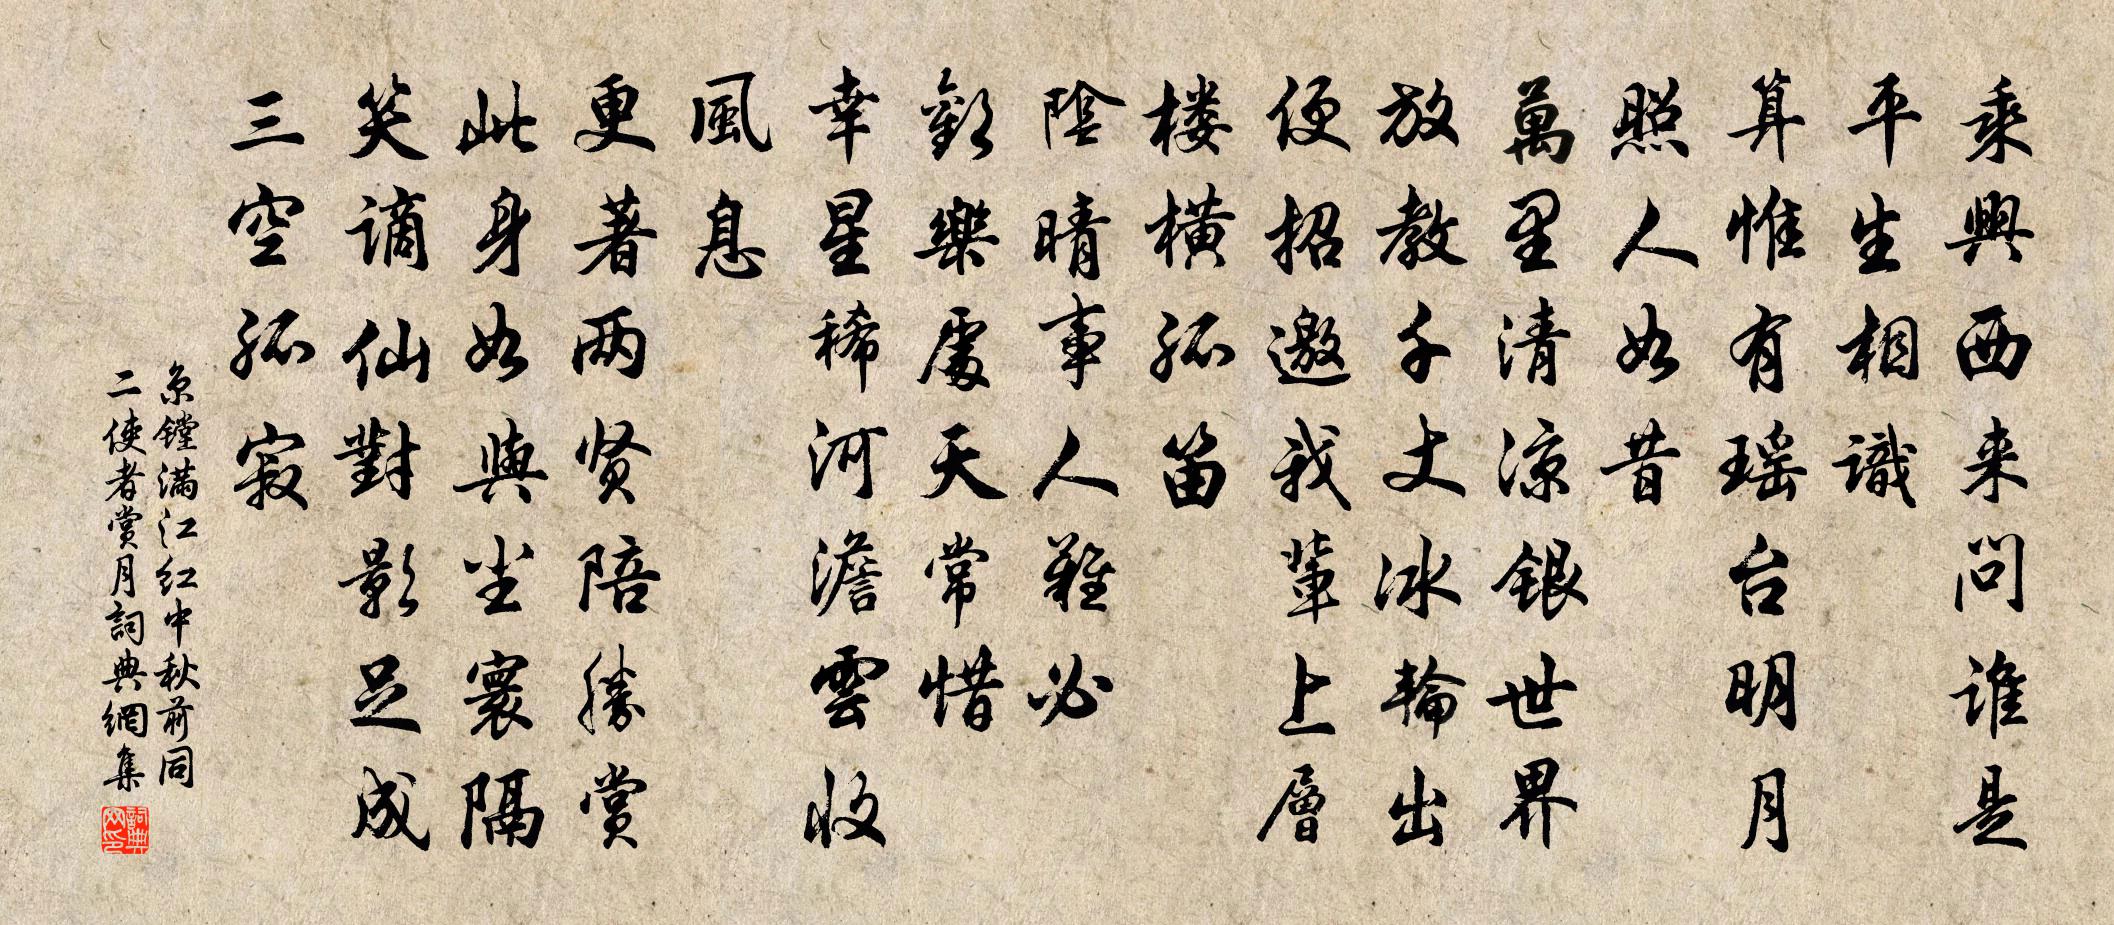 乘興西来问谁是
平生相識
算惟有瑶台明月
照人如昔
萬里清涼銀世界
放教千丈冰輪出
便招邀我輩上層
楼橫孤笛
陰晴事人難必
歡樂處天常惜
幸星稀河澹雲收
風息
更著两贤陪勝賞
此身如與尘寰隔
笑谪仙對影足成
三空孤寂
京镗满江红中秋前同
二使者赏月詞典網集
詞典
网印